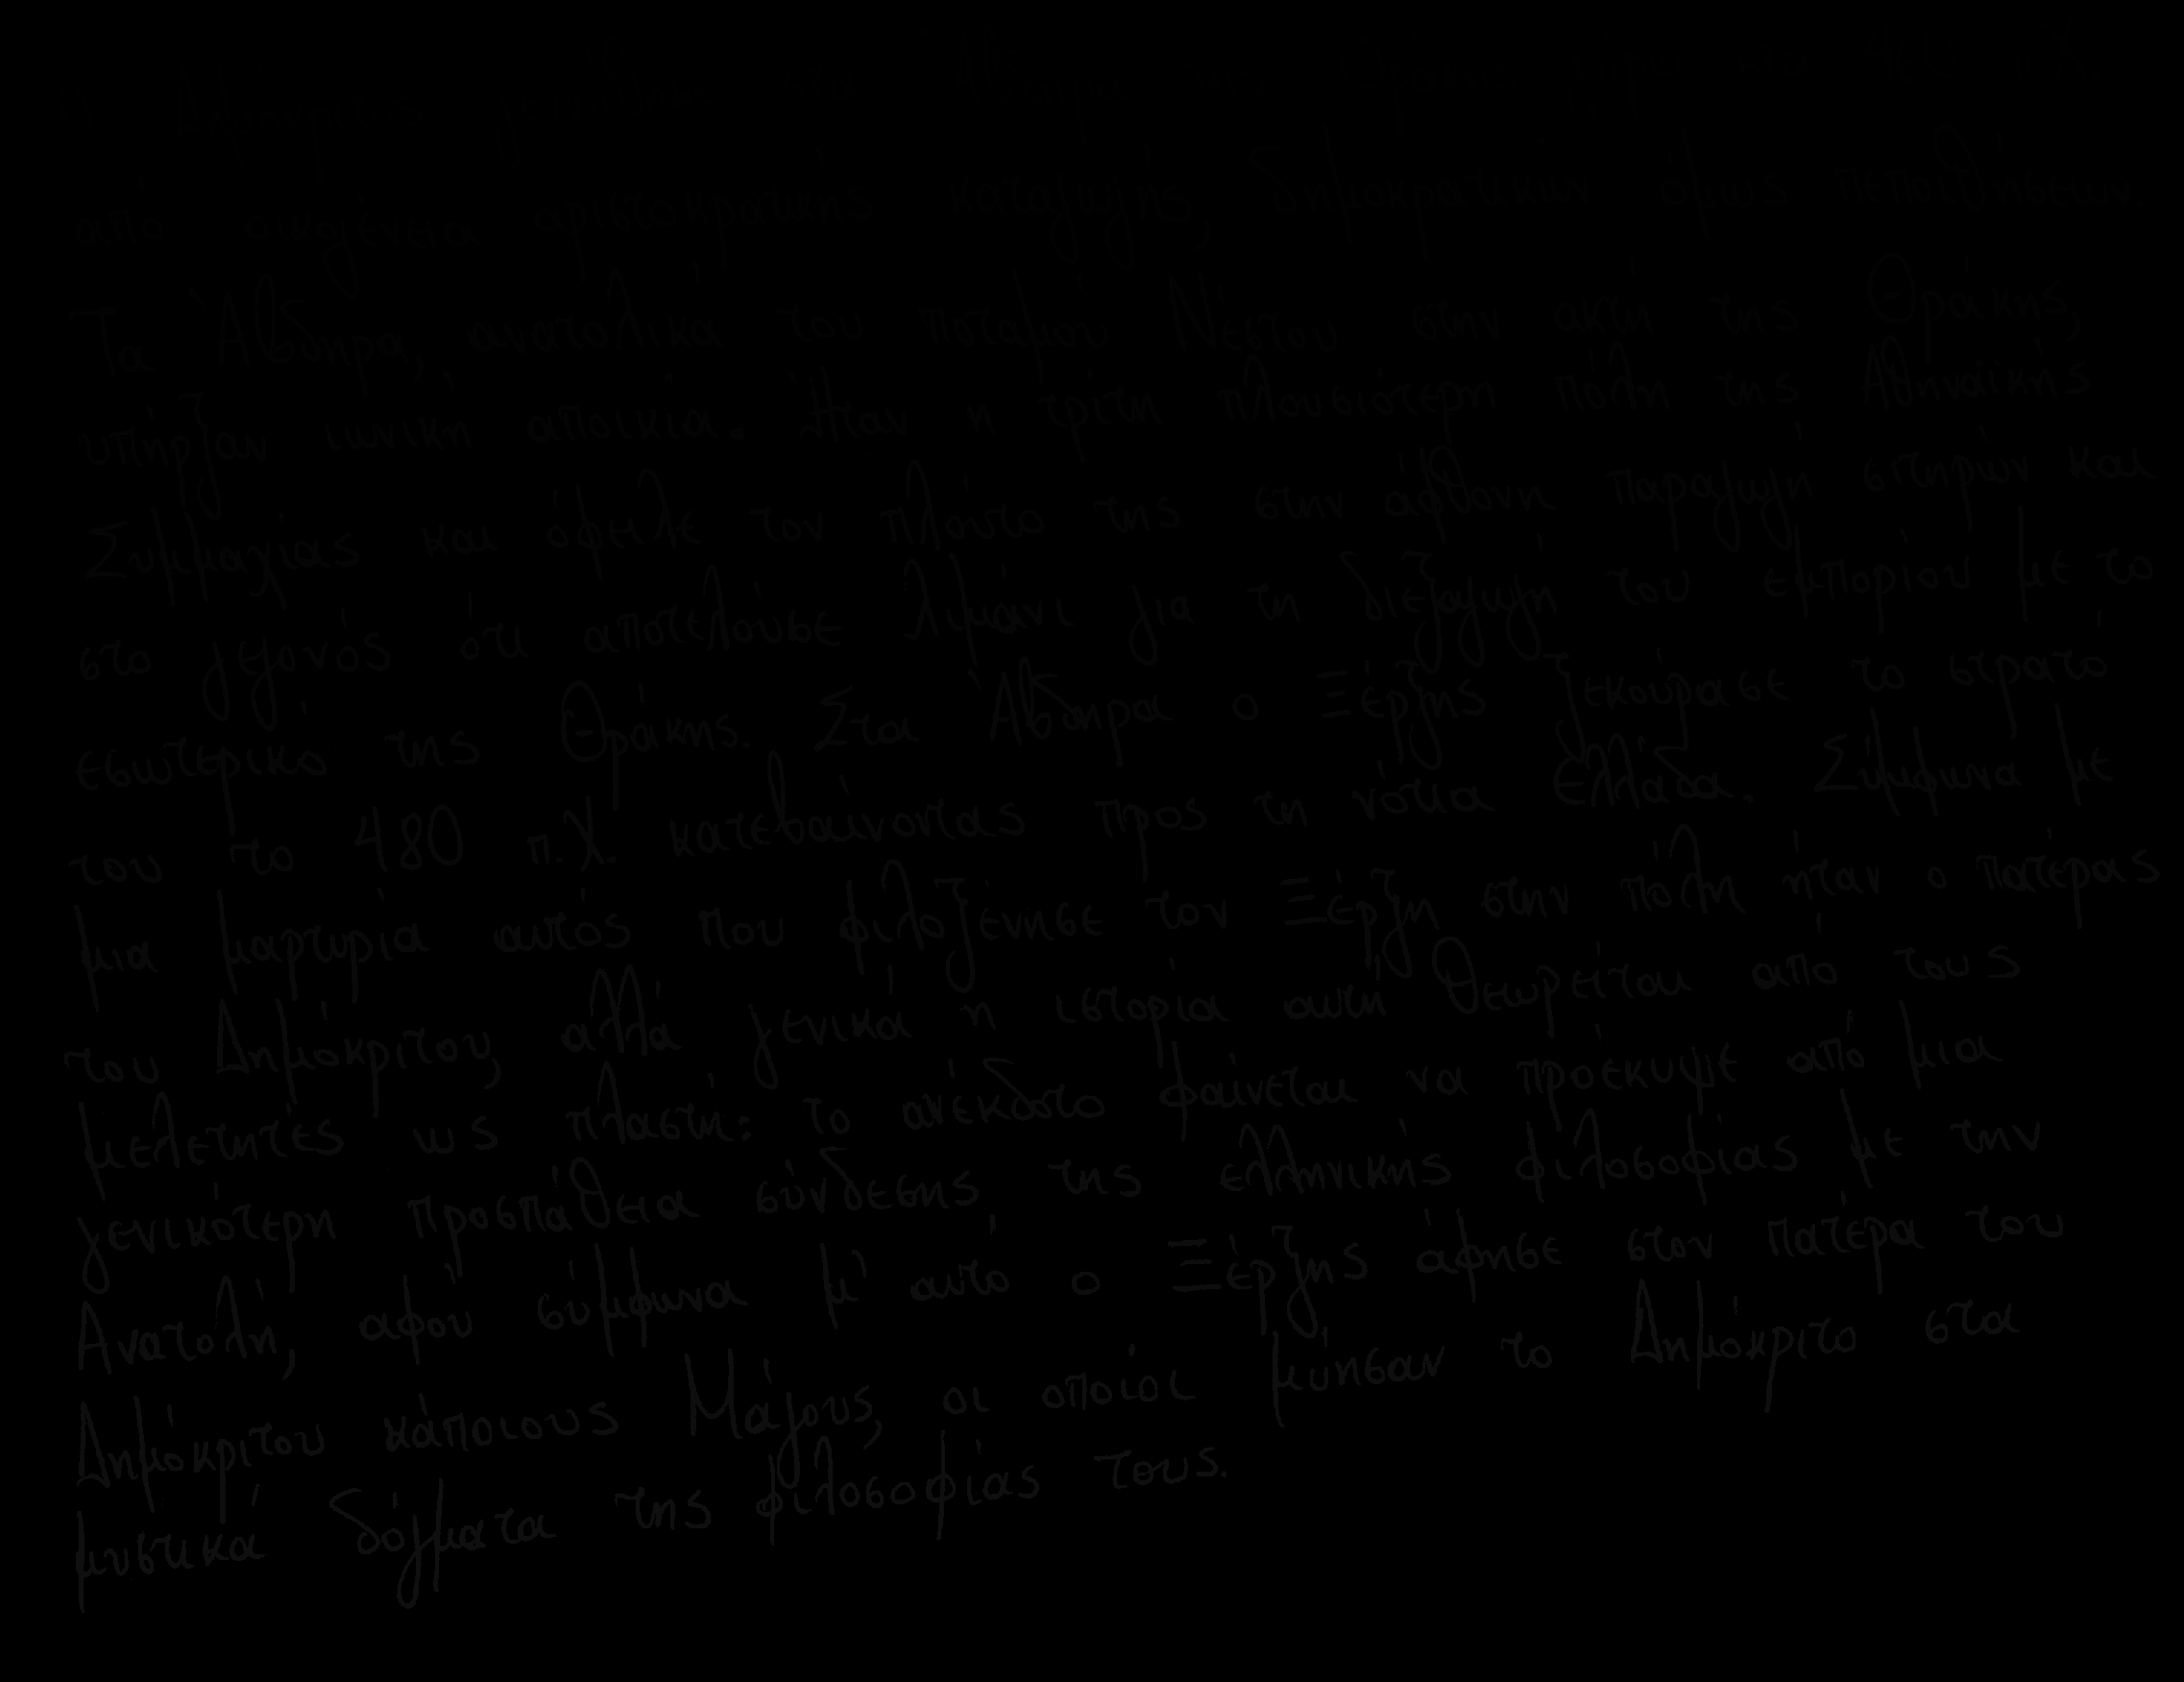 Ο Δημόκριτος γεννήθηκε στα Άβδηρα της Θράκης
από οικογένεια αριστοκρατικής καταγωγής, δημοκρατικών όμως πεποιθήσεων.
Τα Άβδηρα, ανατολικά του ποταμού Νέστου στην ακτή της Θράκης,
υπήρξαν ιωνική αποικία. Ήταν η τρίτη πλουσιότερη πόλη της Αθηναϊκής
Συμμαχίας και όφειλε τον πλούτο της στην άφθονη παραγωγή σιτηρών και
στο γεγονός ότι αποτελούσε λιμάνι για τη διεξαγωγή του εμπορίου με το
εσωτερικό της Θράκης. Στα Άβδηρα ο Ξέρξης ξεκούρασε το στρατό
του το 480 π.Χ. κατεβαίνοντας προς τη νότια Ελλάδα. Σύμφωνα με
μια μαρτυρία αυτός που φιλοξένησε τον Ξέρξη στην πόλη ήταν ο πατέρας
του Δημόκριτου, αλλά γενικά η ιστορία αυτή θεωρείται από τους
μελετητές ως πλαστή: το ανέκδοτο φαίνεται να προέκυψε από μια
γενικότερη προσπάθεια σύνδεσης της ελληνικής φιλοσοφίας με την
Ανατολή, αφού σύμφωνα μ' αυτό ο Ξέρξης άφησε στον πατέρα του
Δημόκριτου κάποιους Μάγους, οι οποίοι μύησαν το Δημόκριτο στα
μυστικά δόγματα της φιλοσοφίας τους.